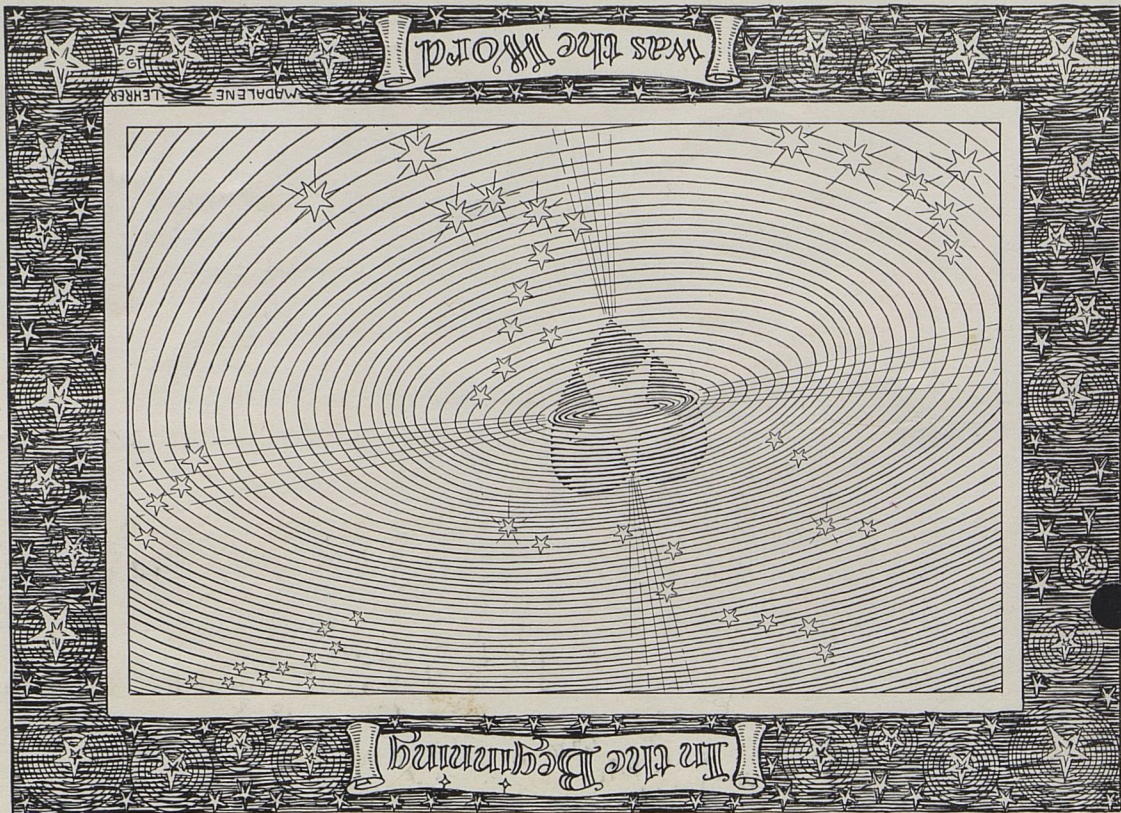 In the Beginning
was the Word
MADALENE LEHRER
19
54